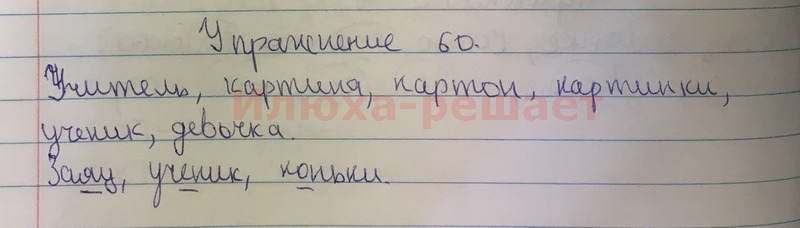 Упражнение 60.
Учитель, картина, картон, картинки,
илюха-решает
ученик, девочка.
Заяц, ученик, коньки.